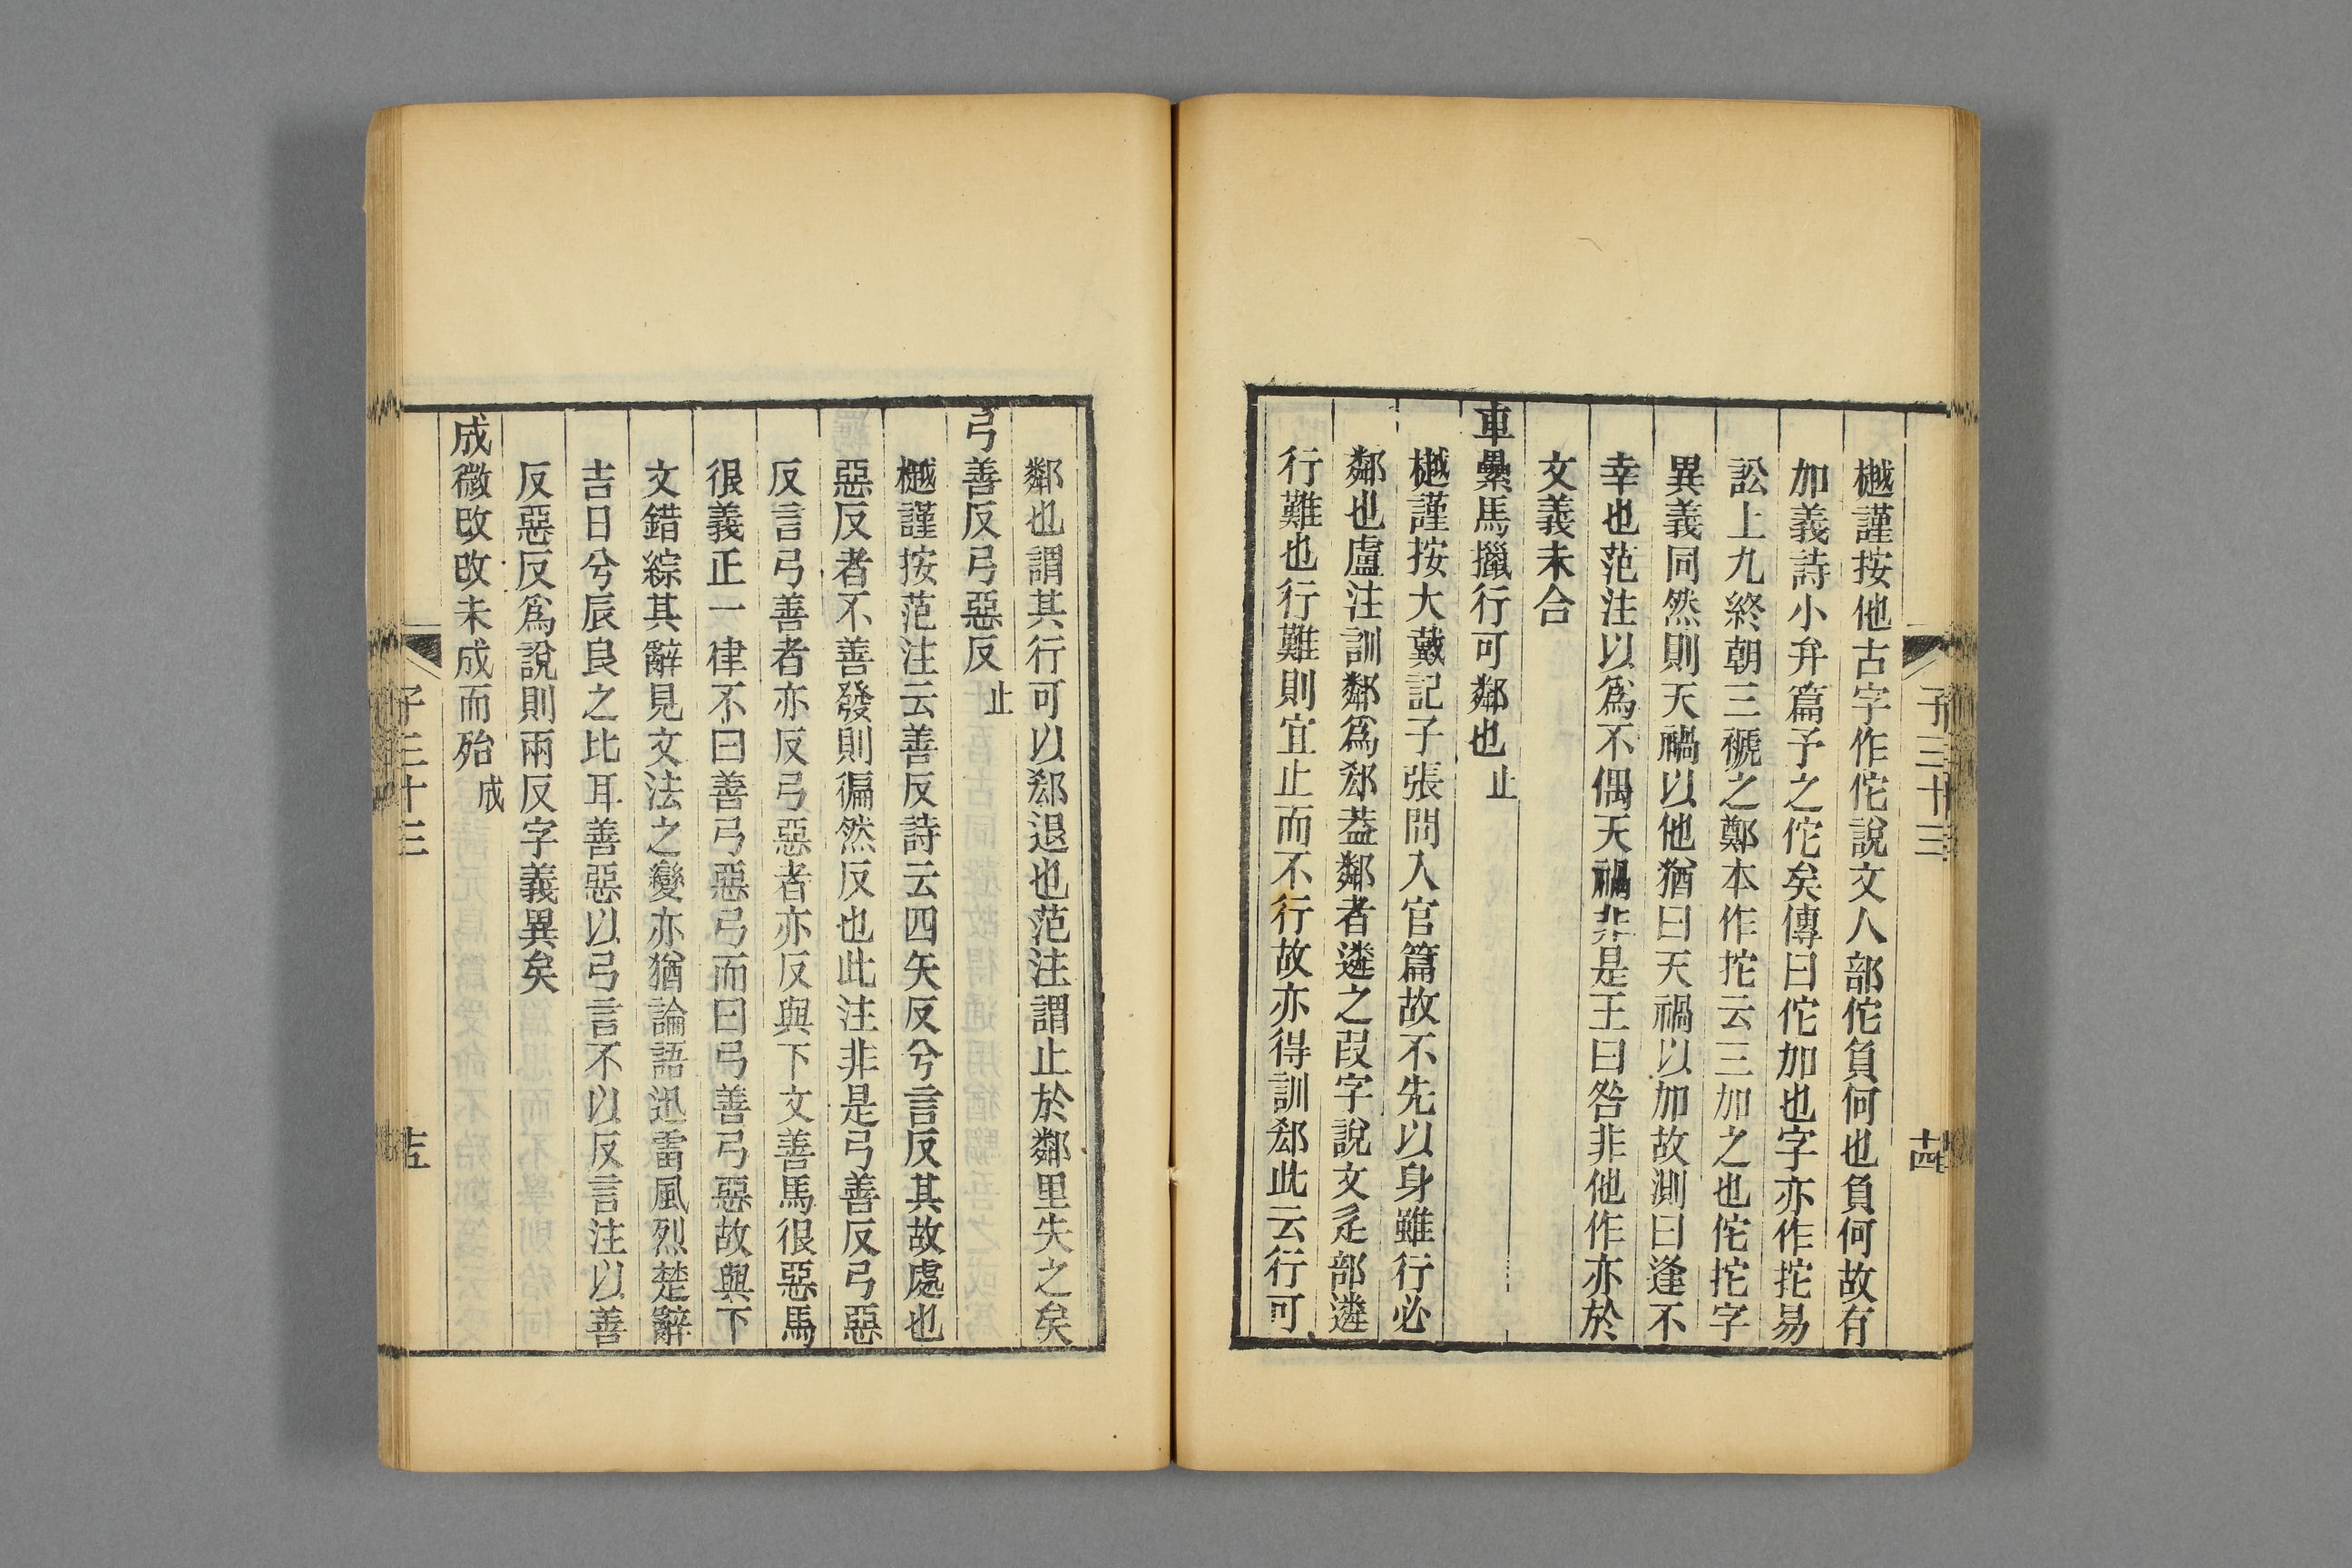 子三十三
十四
樾謹按他古字作佗說文人部佗負何也負何故有
加義詩小弁篇予之佗矣傳曰佗加也字亦作拕易
訟上九終朝三褫之鄭本作拕云三加之也佗拕字
異義同然則天禍以他猶曰天禍以加故測曰逢不
幸也范注以爲不偶天禍非是王曰咎非他作亦於
文義未合
車纍馬㩻行可鄰也 止
樾謹按大戴記子張問入官篇故不先以身雖行必
鄰也盧注訓鄰爲郄葢鄰者遴之叚字說文辵部遴
行難也行難則宜止而不行故亦得訓郄此云行可
鄰也謂其行可以郄退也范注謂止於鄰里失之矣
弓善反弓惡反 止
樾謹按范注云善反詩云四矢反兮言反其故處也
惡反者不善發則徧然反也此注非是弓善反弓惡
反言弓善者亦反弓惡者亦反與下文善馬很惡馬
很義正一律不曰善弓惡弓而曰弓善弓惡故與下
文錯綜其辭見文法之變亦猶論語迅雷風烈楚辭
吉日兮辰良之比耳善惡以弓言不以反言注以善
反惡反爲說則兩反字義異矣
成微改改未成而殆 成
子三十三
十五